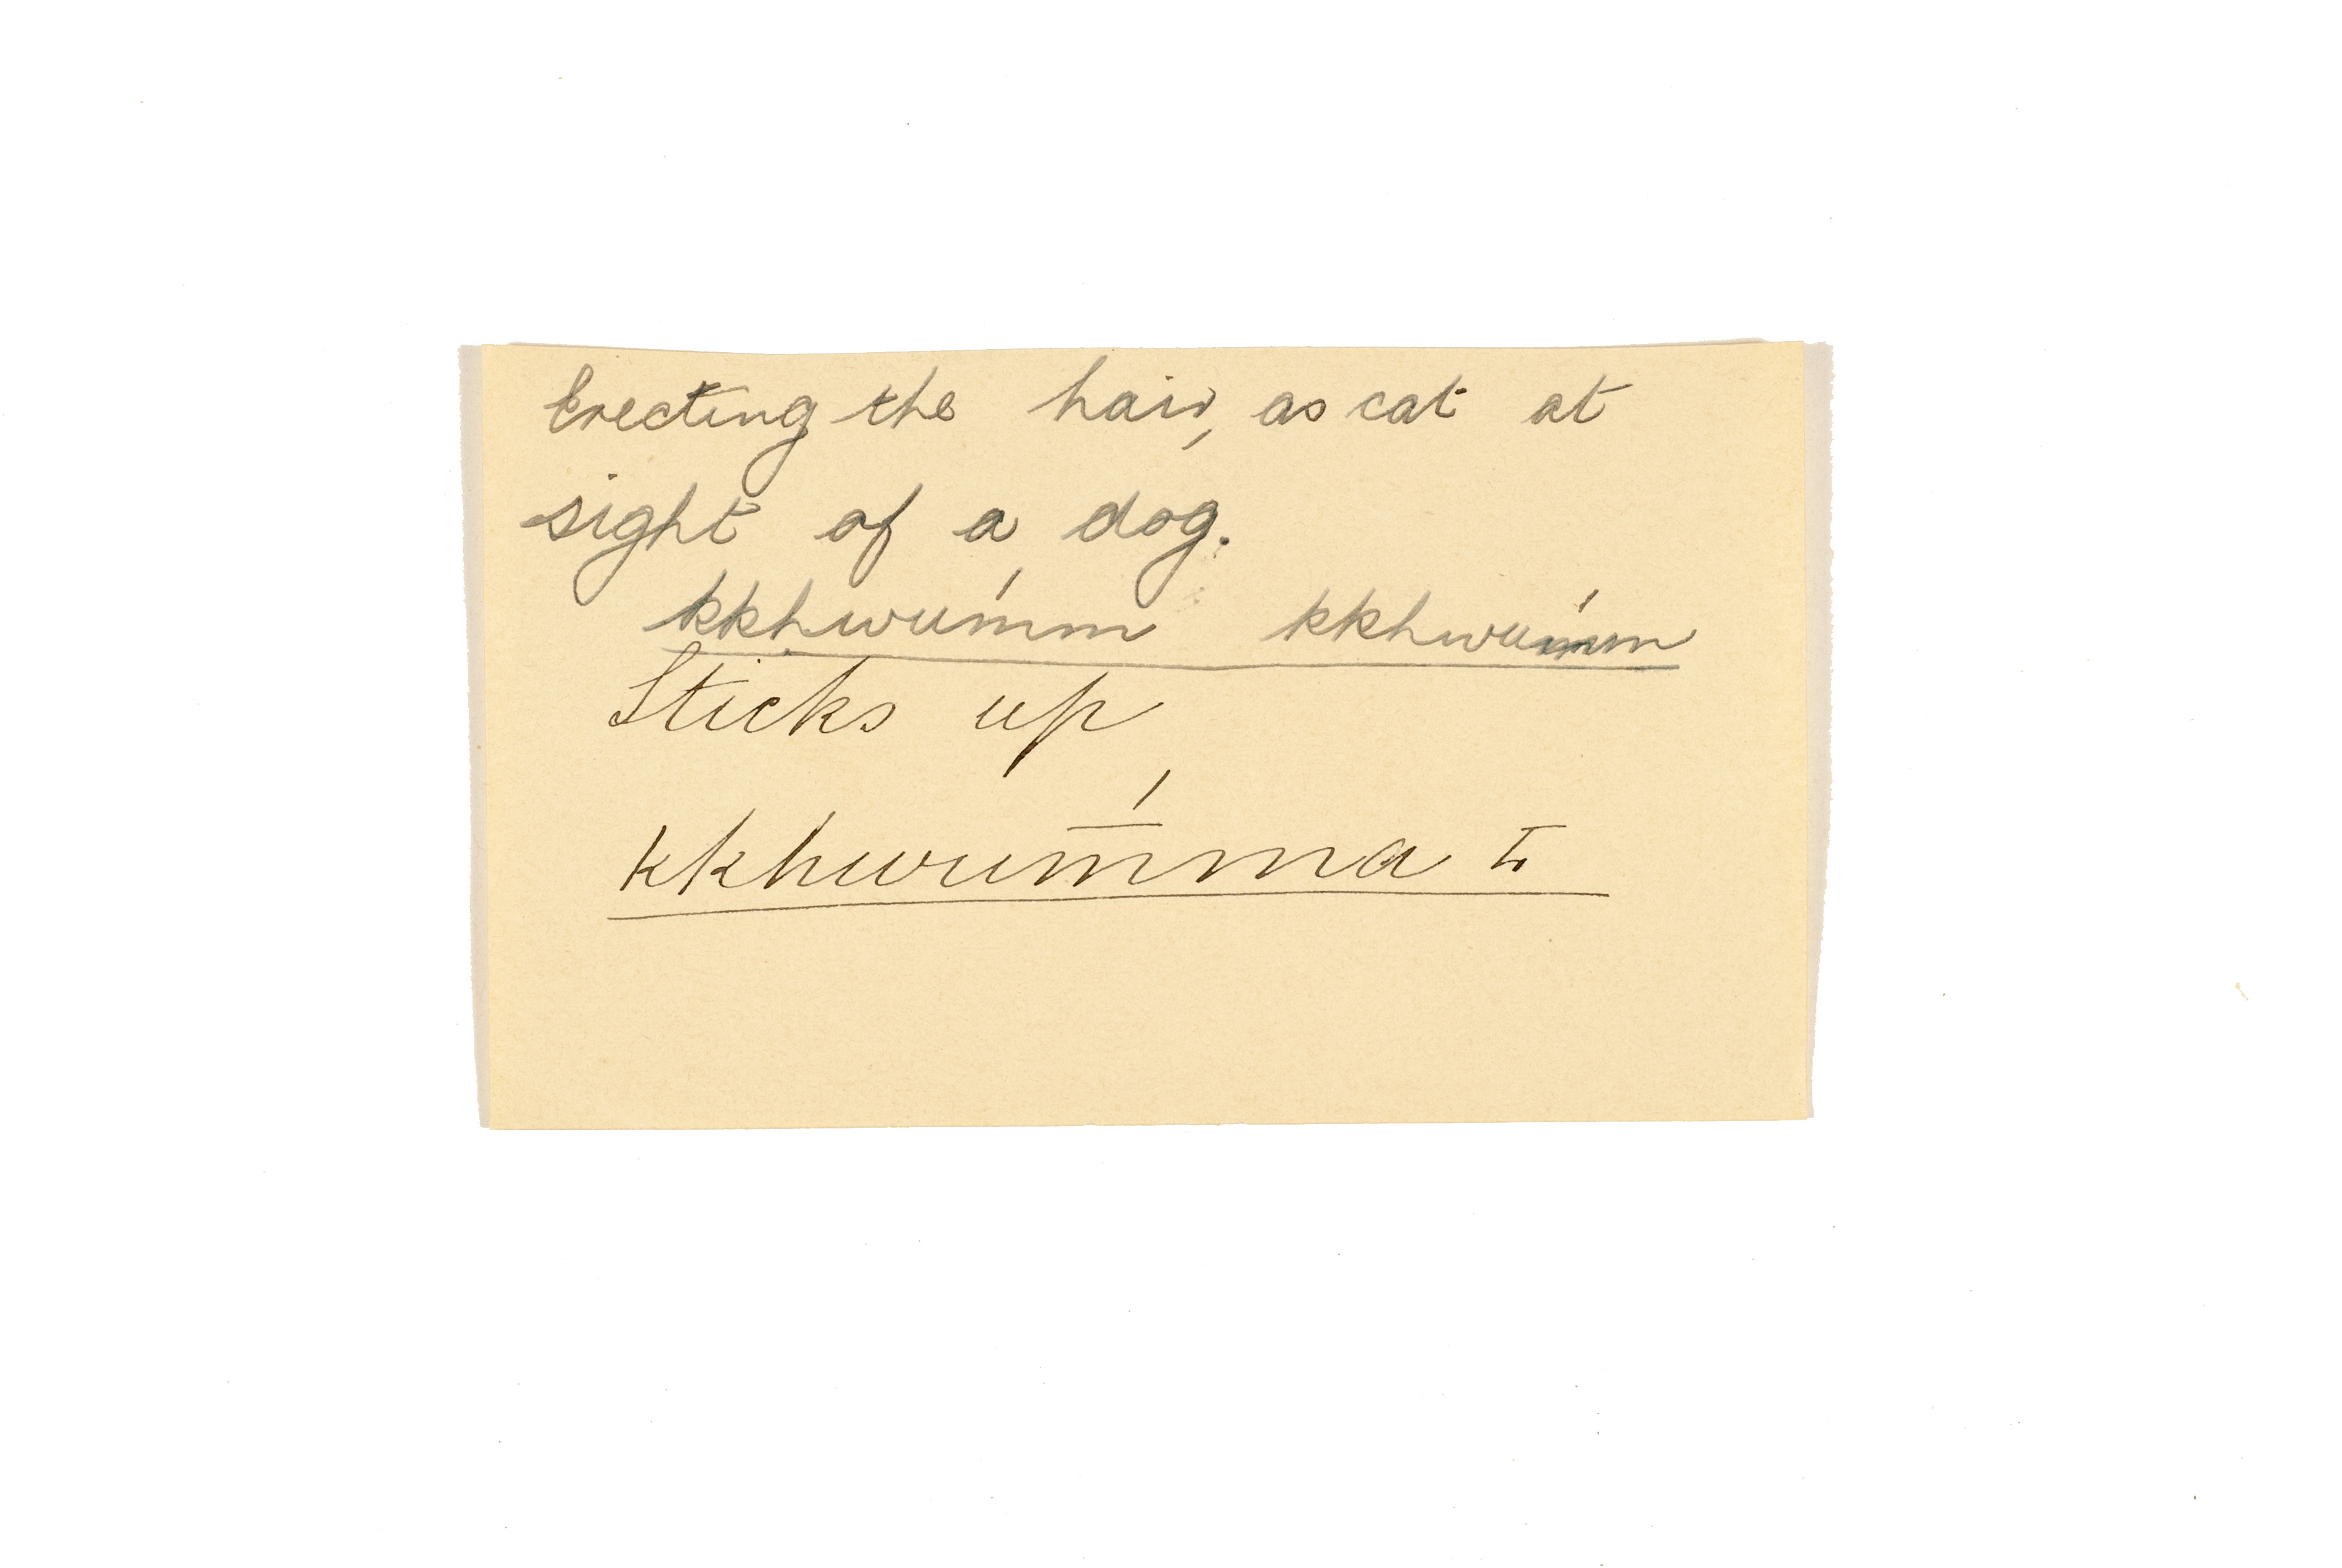 Erecting the hair, as cat at
sight of a dog.
kkhwum̍m kkhwum̍m
Sticks up
kkhwum̄́ma